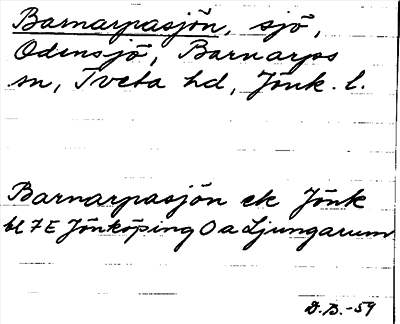 Barnarpasjön, sjö,
Odensjö, Barnarps
sn, Tveta hd, Jönk. l.
Barnarpasjön ek Jönk
bl 7E Jönköping O a Ljungarum
D.B.-59